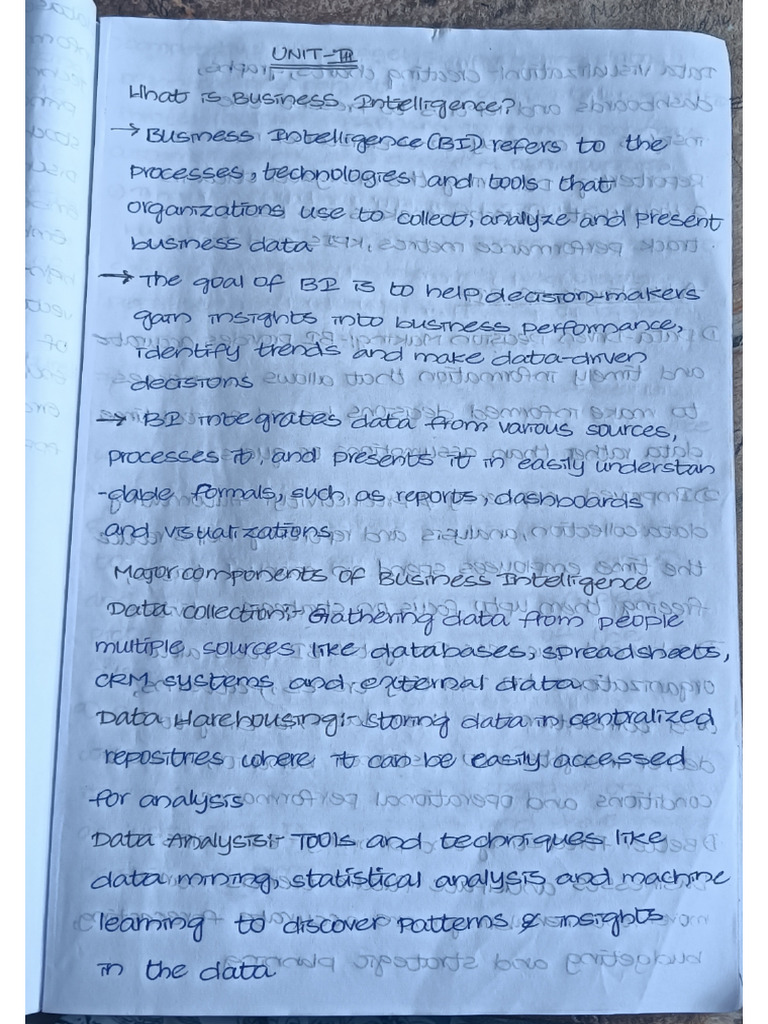 UNIT-III
What is Business Intelligence?
→ Business Intelligence (BI) refers to the
processes, technologies and tools that
organizations use to collect, analyze and present
business data
→ The goal of BI is to help decision-makers
gain insights into business performance,
identify trends and make data-driven
decisions
→ BI integrates data from various sources,
processes it, and presents it in easily understan
-dable formals, such as reports, dashboards
and visualizations
Major components of Business Intelligence
Data collection:- Gathering data from people
multiple sources like databases, spreadsheets,
CRM systems and external data
Data Warehousing:- storing data in centralized
repositries where it can be easily accessed
for analysis
Data Analysis:- Tools and techniques like
data mining, statistical analysis and machine
learning to discover patterns & insights
in the data